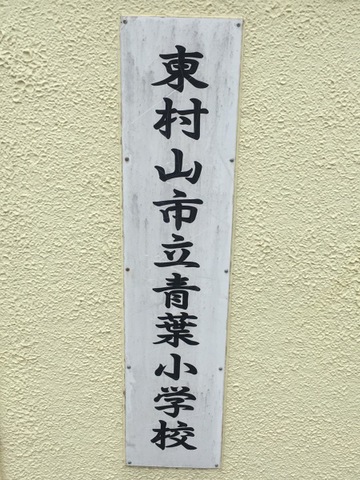 東村山市立青葉小学校